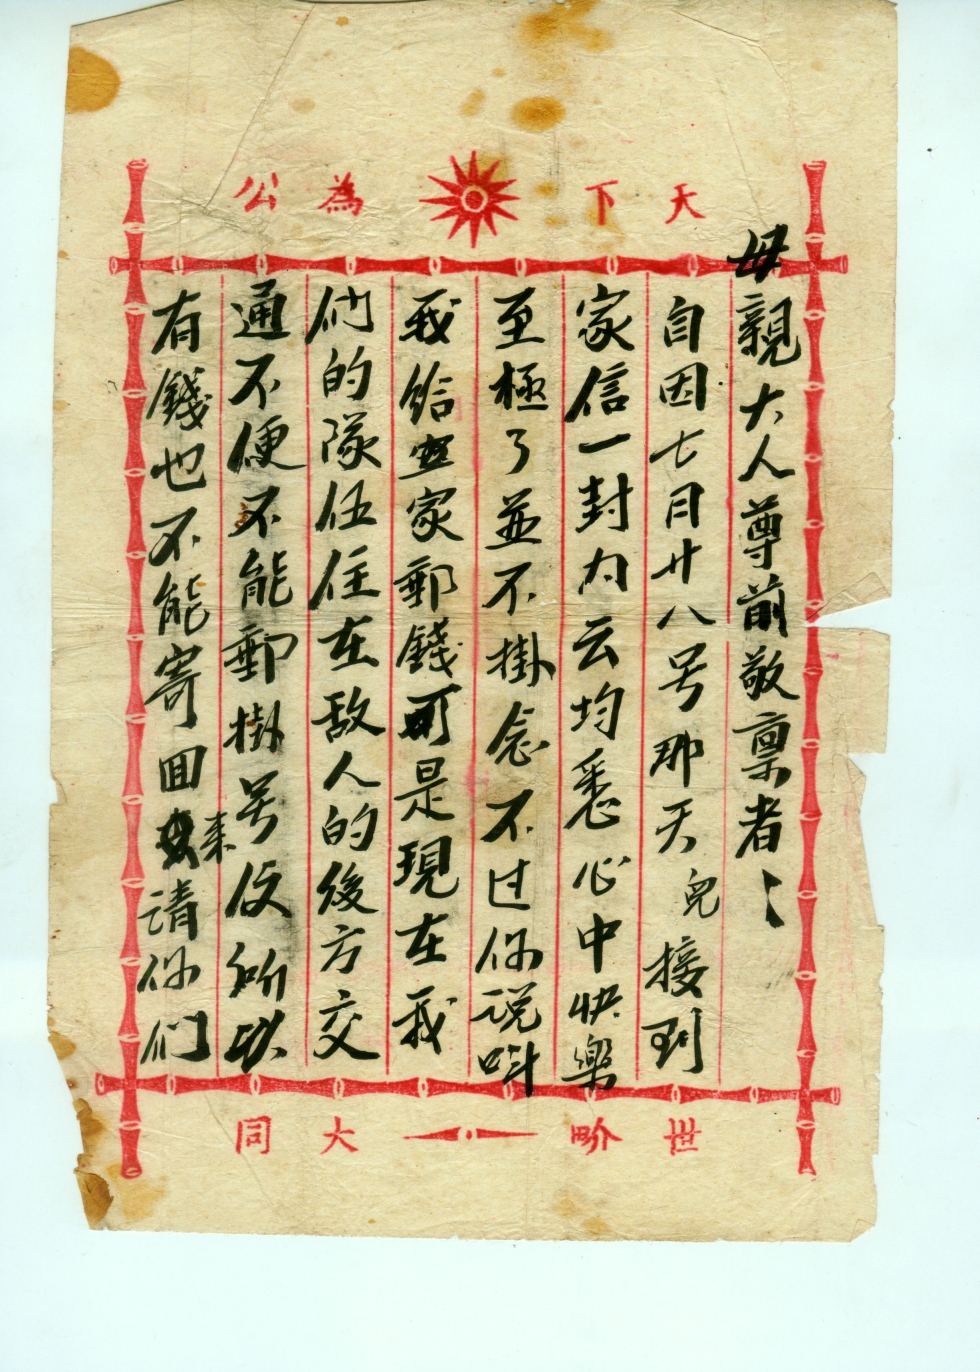 天下為公
母親大人尊前敬禀者
自因七月廿八号那天兒接到
家信一封内云均悉心中快樂
至極了並不掛念不过你说叫
我给家郵錢可是現在我
们的隊伍住在敌人的後方交
通不便不能郵掛号信所以
有錢也不能寄回来请你们
世界大同